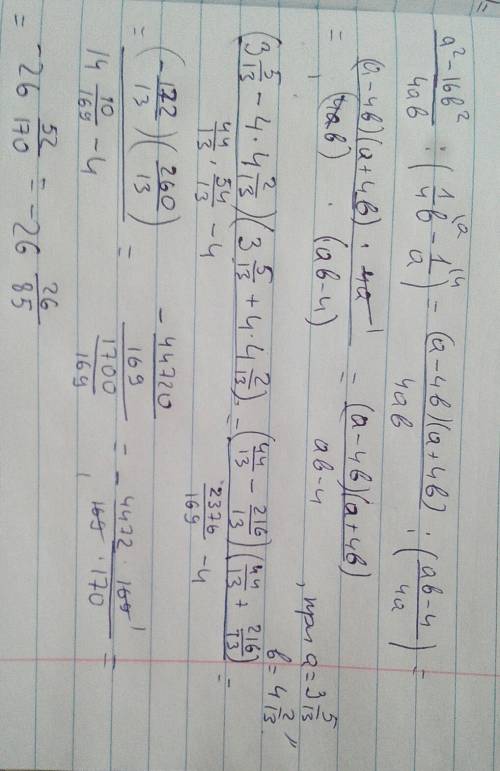 (a² - 16b²)/(4ab) : (1/(4b) - 1/a) = ((a-4b)(a+4b))/(4ab) · ((ab-4)/(4a)) =
= ((a-4b)(a+4b) · 4a)/((4ab) · (ab-4)) = ((a-4b)(a+4b))/(ab-4), при a = 3 5/13, b = 4 2/13,
((3 5/13 - 4·4 2/13)(3 5/13 + 4·4 2/13))/(44/13 · 54/13 - 4) = ((44/13 - 216/13)(44/13 + 216/13))/(2376/169 - 4) =
= ((-172/13)(260/13))/(14 10/169 - 4) = (-44720/169)/(1700/169) = -(4472·169)/(169·170) =
= -26 52/170 = -26 26/85